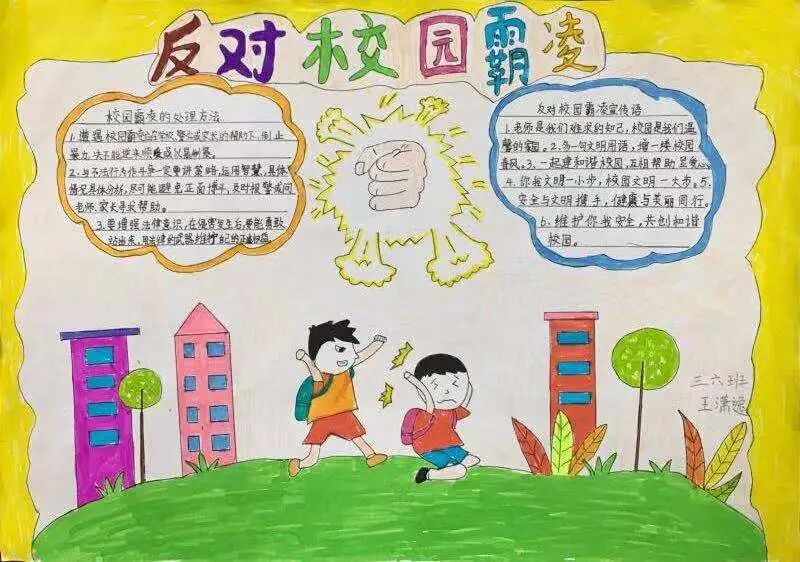 反对校园霸凌
校园霸凌的处理方法
1.遭遇校园霸凌应在学校、警方或家长的帮助下,制止
暴力,决不能逆来顺受或以暴制暴。
2.与不法行为作斗争一定要讲策略,运用智慧,具体
情况具体分析,尽可能避免正面搏斗,及时报警或向
老师.家长寻求帮助。
3.要增强法律意识,在侵害发生后,要能勇敢
站出来,用法律的武器维护自己的正当权益。
反对校园霸凌宣传语
1.老师是我们难求的知己,校园是我们温
馨的家园。2.多一句文明用语,增一缕校园
春风。3.一起建和谐校园,互相帮助显爱心。
4.你我文明一小步,校园文明一大步。5.
安全与文明携手,健康与美丽同行。
6.维护你我安全,共创和谐
校园。
三六班
王潇逸